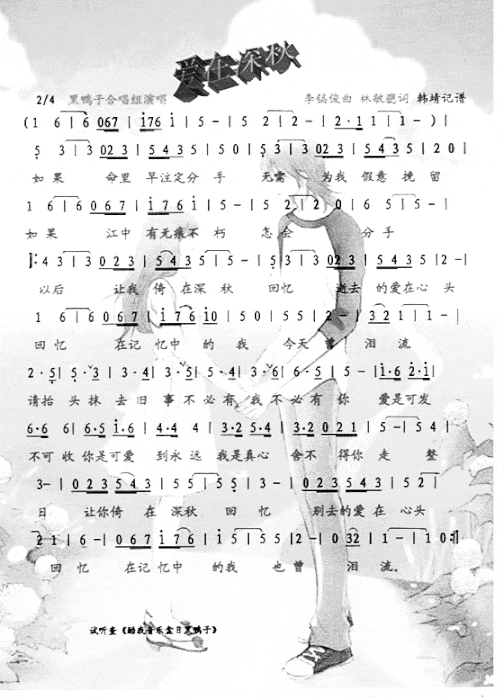 爱在深秋
2/4 黑鸭子合唱组演唱 李镐俊曲 林敏骢词 韩靖记谱
(1 6|6 067|i76 i|5-|5 2|2-|2·1|1-)|
5 3|3 023|5435|150|5 3|3 023|5435|20|
如果 命里 早注定分手 无需 为我 假意 挽留
1 6|6 067|i76 i|5-|5 2|2 0|6 5|5-|
如果 江中 有无痕不朽 怎会 分手
4 3|3 023|5435|5-|5 3|3 023|5435|2-|
以后 让我 倚在深秋 回忆 逝去 的爱在心头
1 6|6 067|i76 i0|50|55|2-|321|1-|
回忆 在记忆中 的我 今天曾 泪流
2·5|5·3|3·4|3·5|5·4|3·2|3·5|5-|i·6 2·i|
请抬头抹去旧事不必有我不必有你 爱是可发
6·6 6|6·5 i·6|4-|4 4|3·2 5·4|3·2 021|5-|54|
不可收你是可爱 到永远 我是真心 舍不得你走 整
3-|023 5435|55|55|3-|023 5435|5-|
日 让你倚在深秋 回忆 别去的爱在心头
21|6-|067 i76|i5|55|2-|032|1-|10:|
回忆 在记忆中 的我 也曾 泪流。
试听查《酷我音乐盒日黑鸭子》